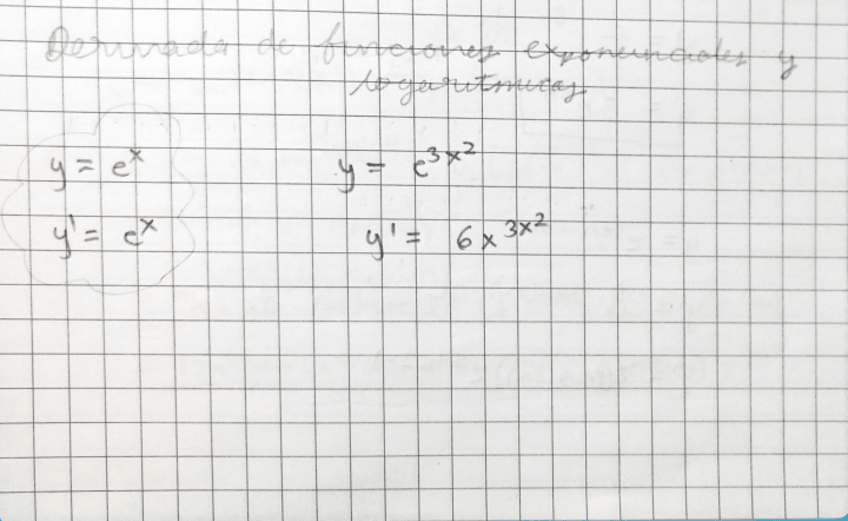 Derivada de funciones exponenciales y
logaritmicas
y = eˣ
y' = eˣ
y = e³ˣ²
y' = 6x³ˣ²